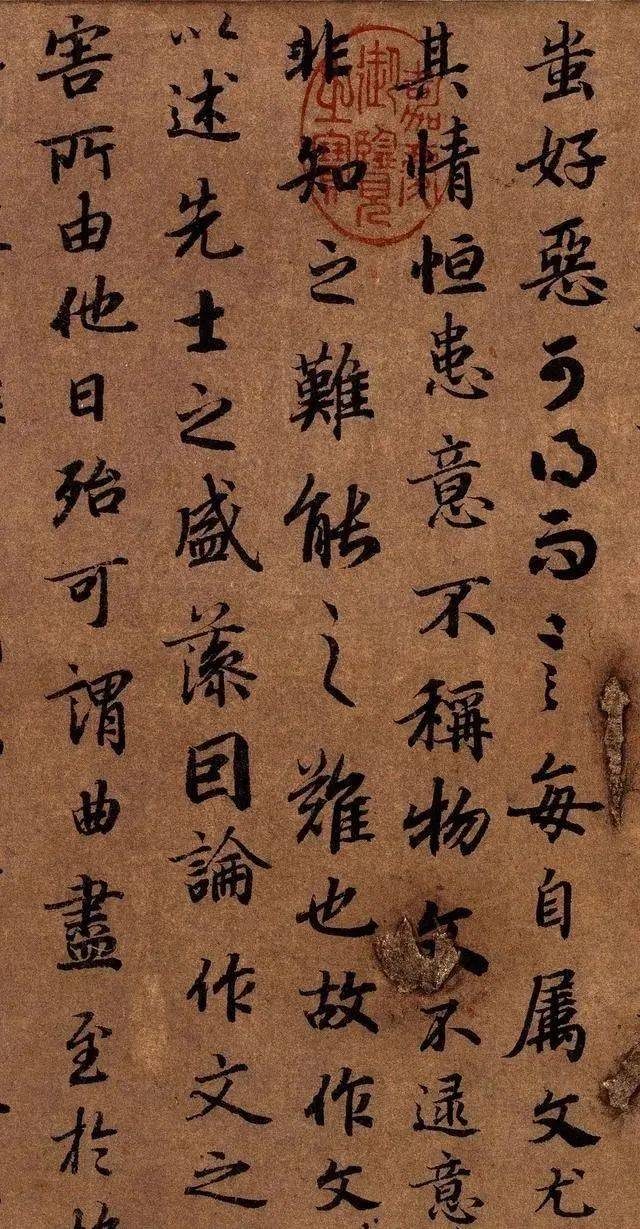 蚩好惡可得而言每自属文尤
其情恒患意不稱物文不逮意
非知之難能之難也故作文
以述先士之盛藻因論作文之
害所由他日殆可謂曲盡至於
嘉慶御覽之寶